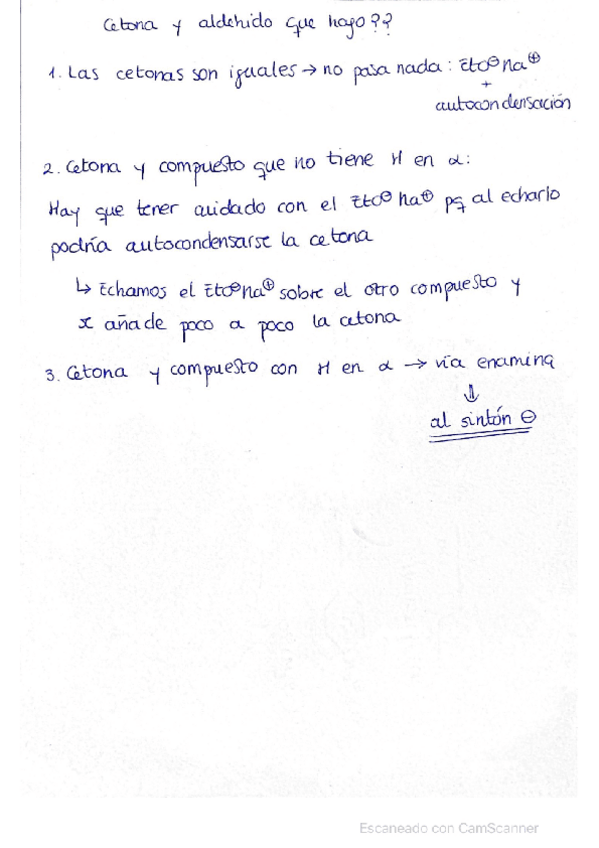 Cetona y aldehido que hago??
1. Las cetonas son iguales → no pasa nada: Eto⊖na⊕
+
autocondensación
2. Cetona y compuesto que no tiene H en α:
Hay que tener cuidado con el Eto⊖na⊕ pq al echarlo
podría autocondensarse la cetona
↳ Echamos el Eto⊖na⊕ sobre el otro compuesto y
x añade poco a poco la cetona
3. Cetona y compuesto con H en α → vía enamina
⇓
al sintón ⊖
Escaneado con CamScanner